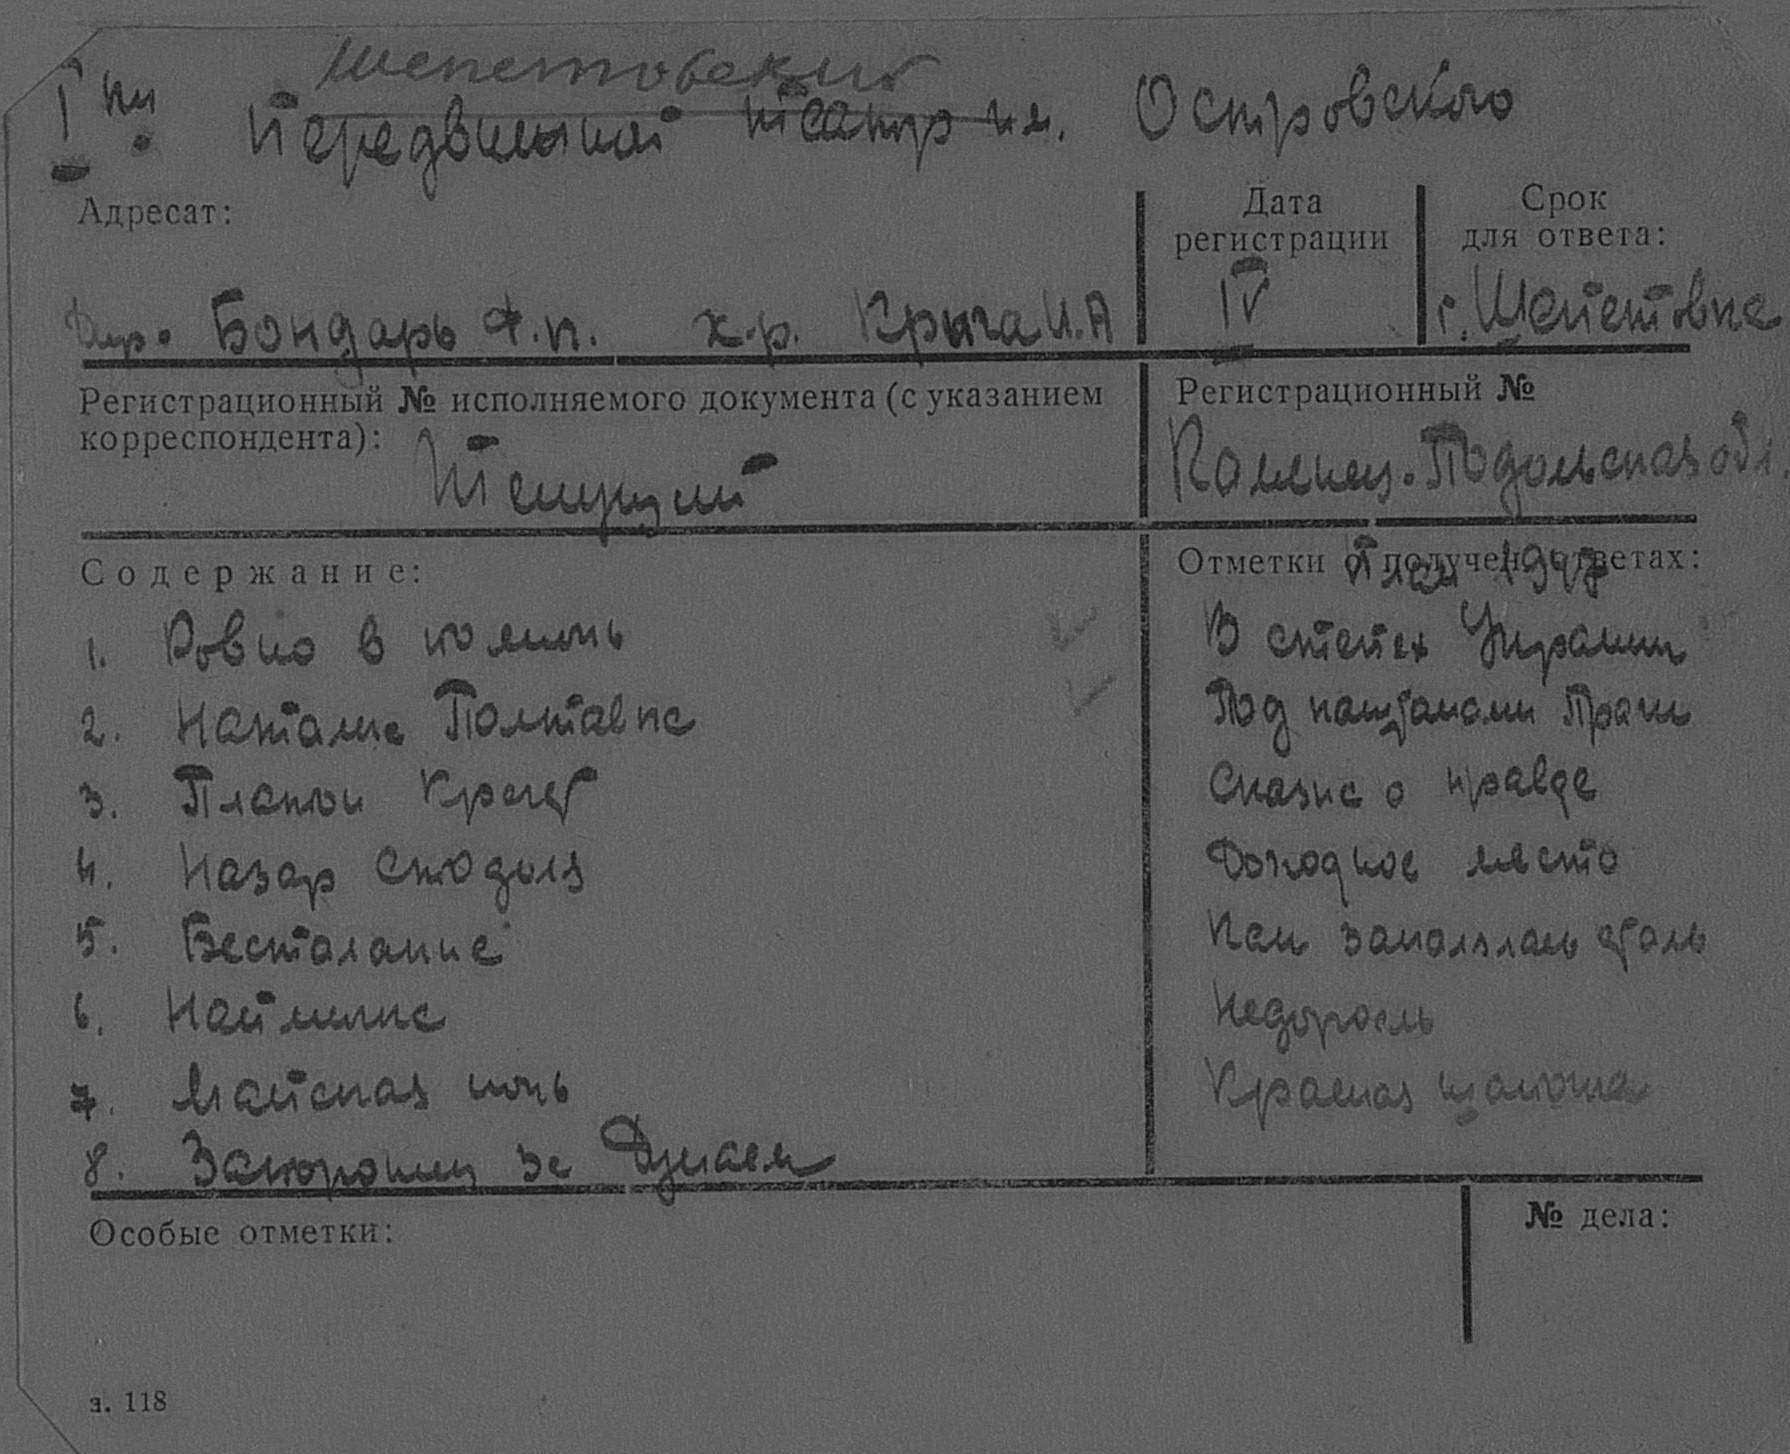 Шепетовский
Передвижной театр им. Островского
Адресат:
Дата регистрации
Срок для ответа:
Дир. Бондарь Ф.П. х.р. Крыга И.А
IV
г. Шепетовка
Регистрационный № исполняемого документа (с указанием
корреспондента):
Текущий
Регистрационный №
Каменец-Подольская обл
Содержание:
Отметки о получен ответах:
План 1947
1. Ровно в полночь
2. Наталка Полтавка
3. Платон Кречет
4. Назар Стодоля
5. Бесталанна
6. Наймичка
7. Майская ночь
8. Запорожец за Дунаем
В степях Украины
Под каштанами Праги
Сказка о правде
Доходное место
Как закалялась сталь
Недоросль
Красная шапочка
Особые отметки:
№ дела:
з. 118